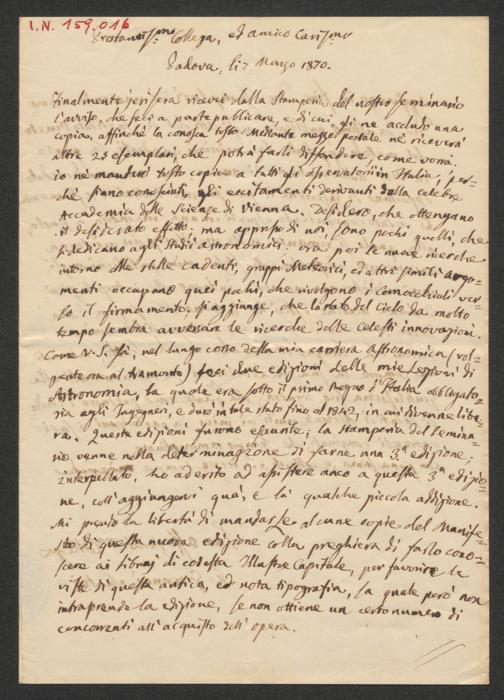 I.N. 159.016
Prestantissmo Collega, ed amico Carissmo
Padova, li 7 Marzo 1870.
Finalmente jerisera ricevei dalla Stamperia del nostro seminario
l'avviso, che feci a parte publicare, e di cui gli ne accludo una
copia, affinchè la conosca tosto. Mediante mezzo postale ne riceverà
altre 25 esemplari, che potrà farli diffondere, come vorrà.
io ne manderò tosto copia a tutti gli osservatorii in Italia, per-
chè siano conosciuti gli eccitamenti derivanti dalla celebre
Accademia delle Scienze di Vienna. Desidero, che ottengano
il desiderato effetto. ma appresso di noi, sono pochi quelli, che
si dedicano agli studii astronomici: ora poi le nuove ricerche
intorno alle stelle cadenti, gruppi Meteorici, ed altri simili argo-
menti occupano quei pochi, che rivolgono i Cannochiali ver-
so il firmamento. si aggiunge, che lo stato del Cielo da molto
tempo sembra avversare le ricerche delle celesti innovazioni.
Come V.S. sà, nel lungo corso della mia carriera astronomica (vol-
gente ora al tramonto) feci due edizioni delle mie Lezioni di
Astronomia, la quale era sotto il primo Regno d'Italia obbligato-
ria agli Ingegneri, e durò in tale stato fino al 1842, in cui divenne libe-
ra. Queste edizioni furono esaurite; la Stamperia del semina-
rio venne nella determinazione di farne una 3a edizione;
interpellato, ho aderito ad assistere anco a questa 3a edizio-
ne, coll'aggiungervi quà, e là qualche piccola addizione.
Mi prendo la libertà di mandarle alcune copie del Manife-
sto di questa nuova edizione colla preghiera di farlo cono-
scere ai librai di codesta Illustre Capitale, per favorire le
viste di questa antica, ed nota tipografia, la quale però non
intraprende la edizione, se non ottiene un certo numero di
concorrenti all'acquisto dell'opera.